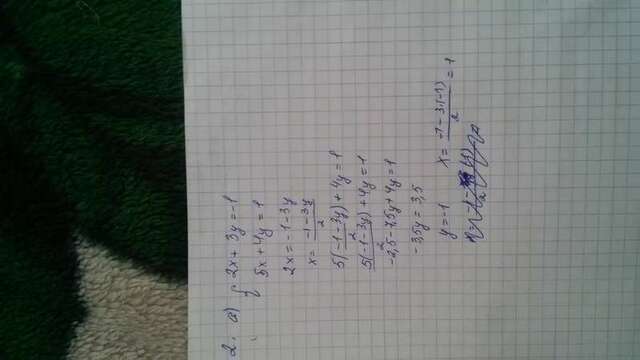 2. a) { 2x + 3y = -1
5x + 4y = 1
2x = -1 - 3y
x = (-1 - 3y)/2
5(-1 - 3y)/2 + 4y = 1
5(-1 - 3y)/2 + 4y = 1
-2,5 - 7,5y + 4y = 1
-3,5y = 3,5
y = -1 x = (-1 - 3·(-1))/2 = 1